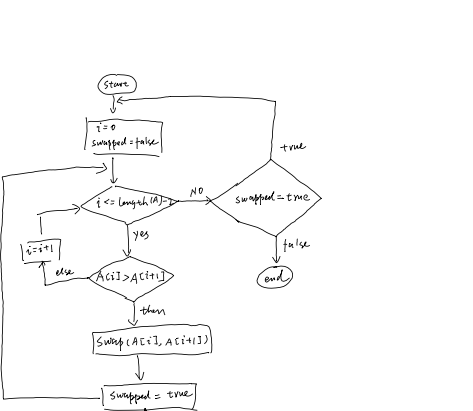 start
i=0
swapped=false
true
i <= length(A)-1
NO
swapped=true
yes
false
i=i+1
else
A[i]>A[i+1]
end
then
swap(A[i], A[i+1])
swapped = true